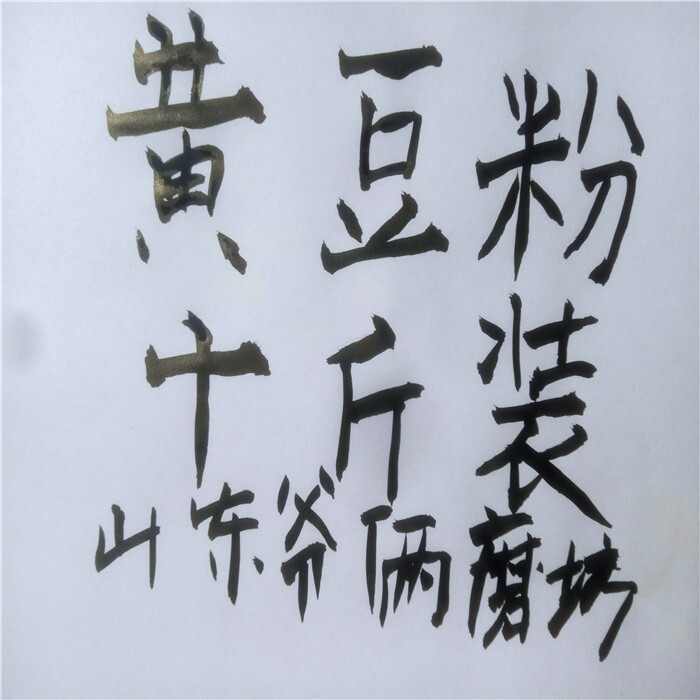 黄豆粉
十斤装
山东爷俩磨坊